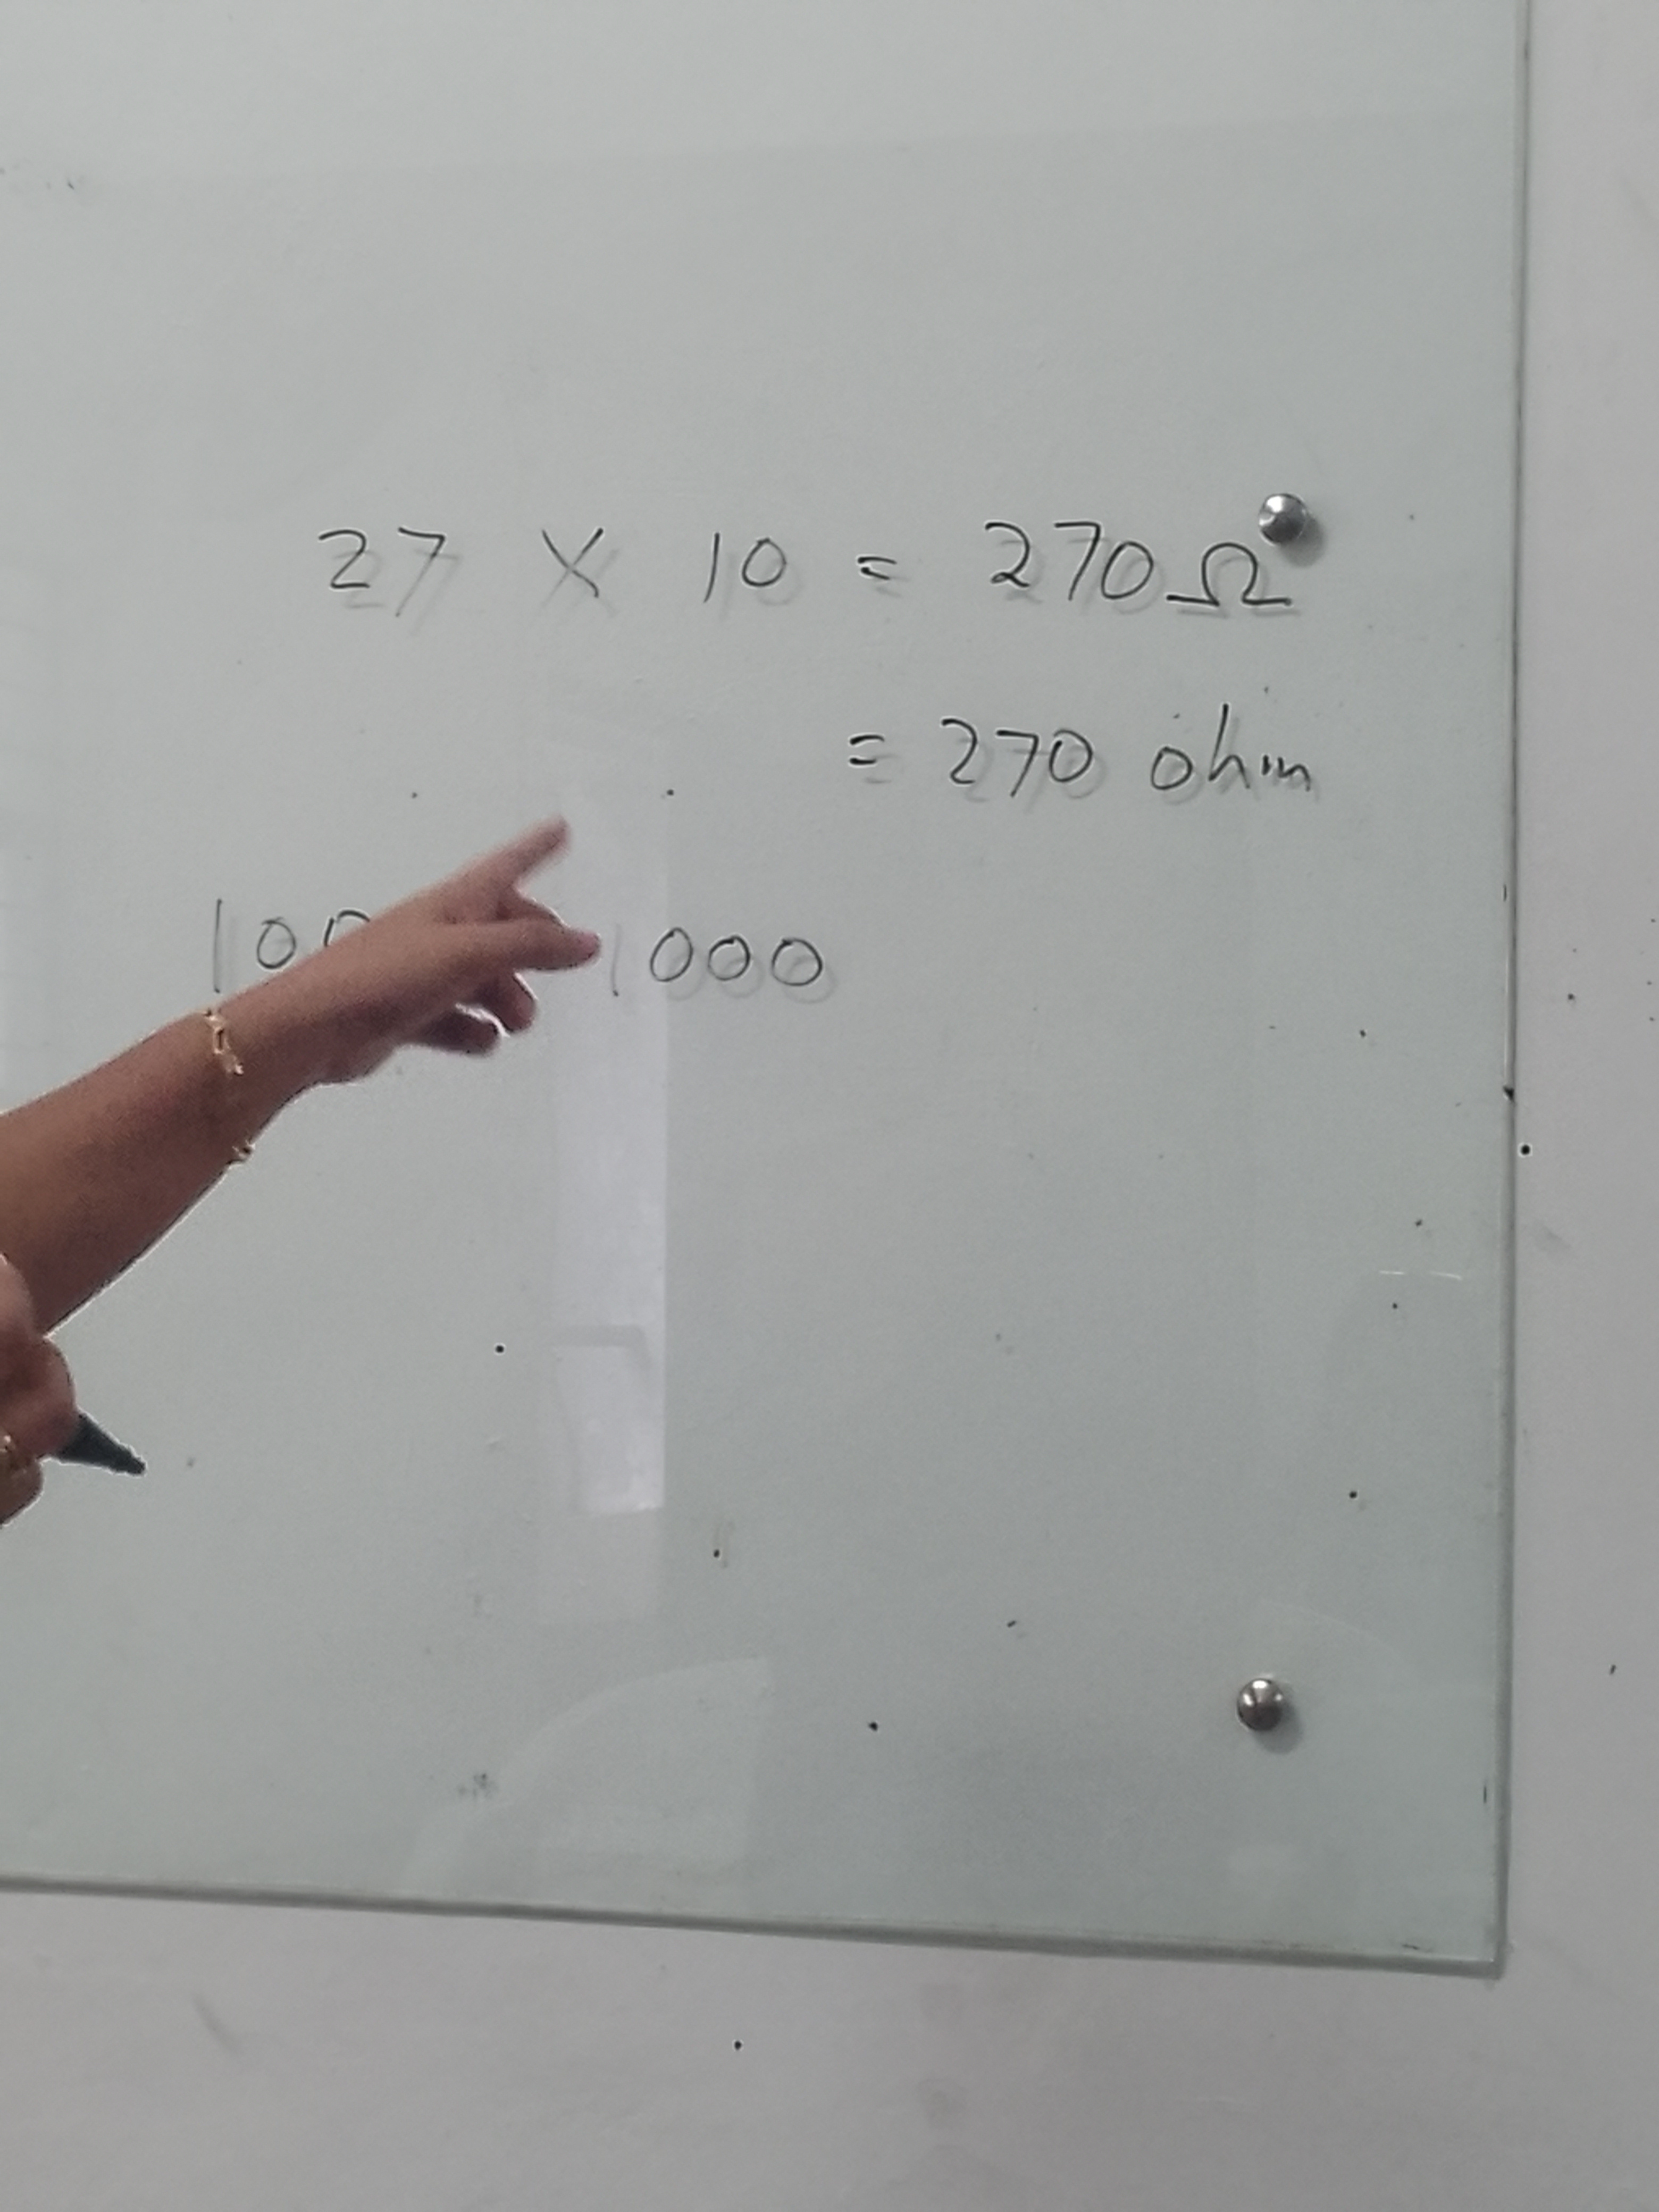 27 X 10 = 270Ω
= 270 ohm
1000